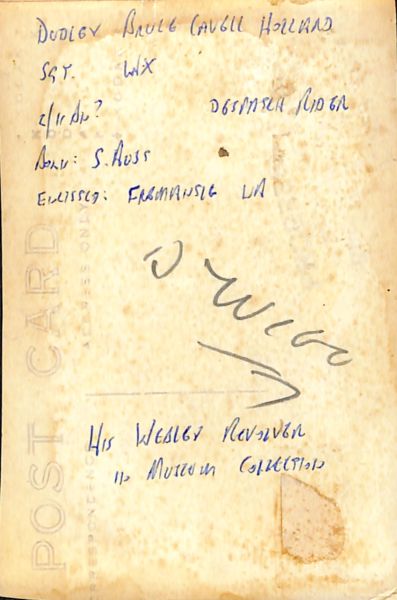 DUDLEY BRUCE CAVELL HOLLAND
SGT. WX
2/11 BN? DESPATCH RIDER
BORN: S. AUSS
ENLISTED: FREMANTLE WA
HIS WEBLEY REVOLVER
IN MUSEUM COLLECTION
POST CARD
ADDRESS ONLY